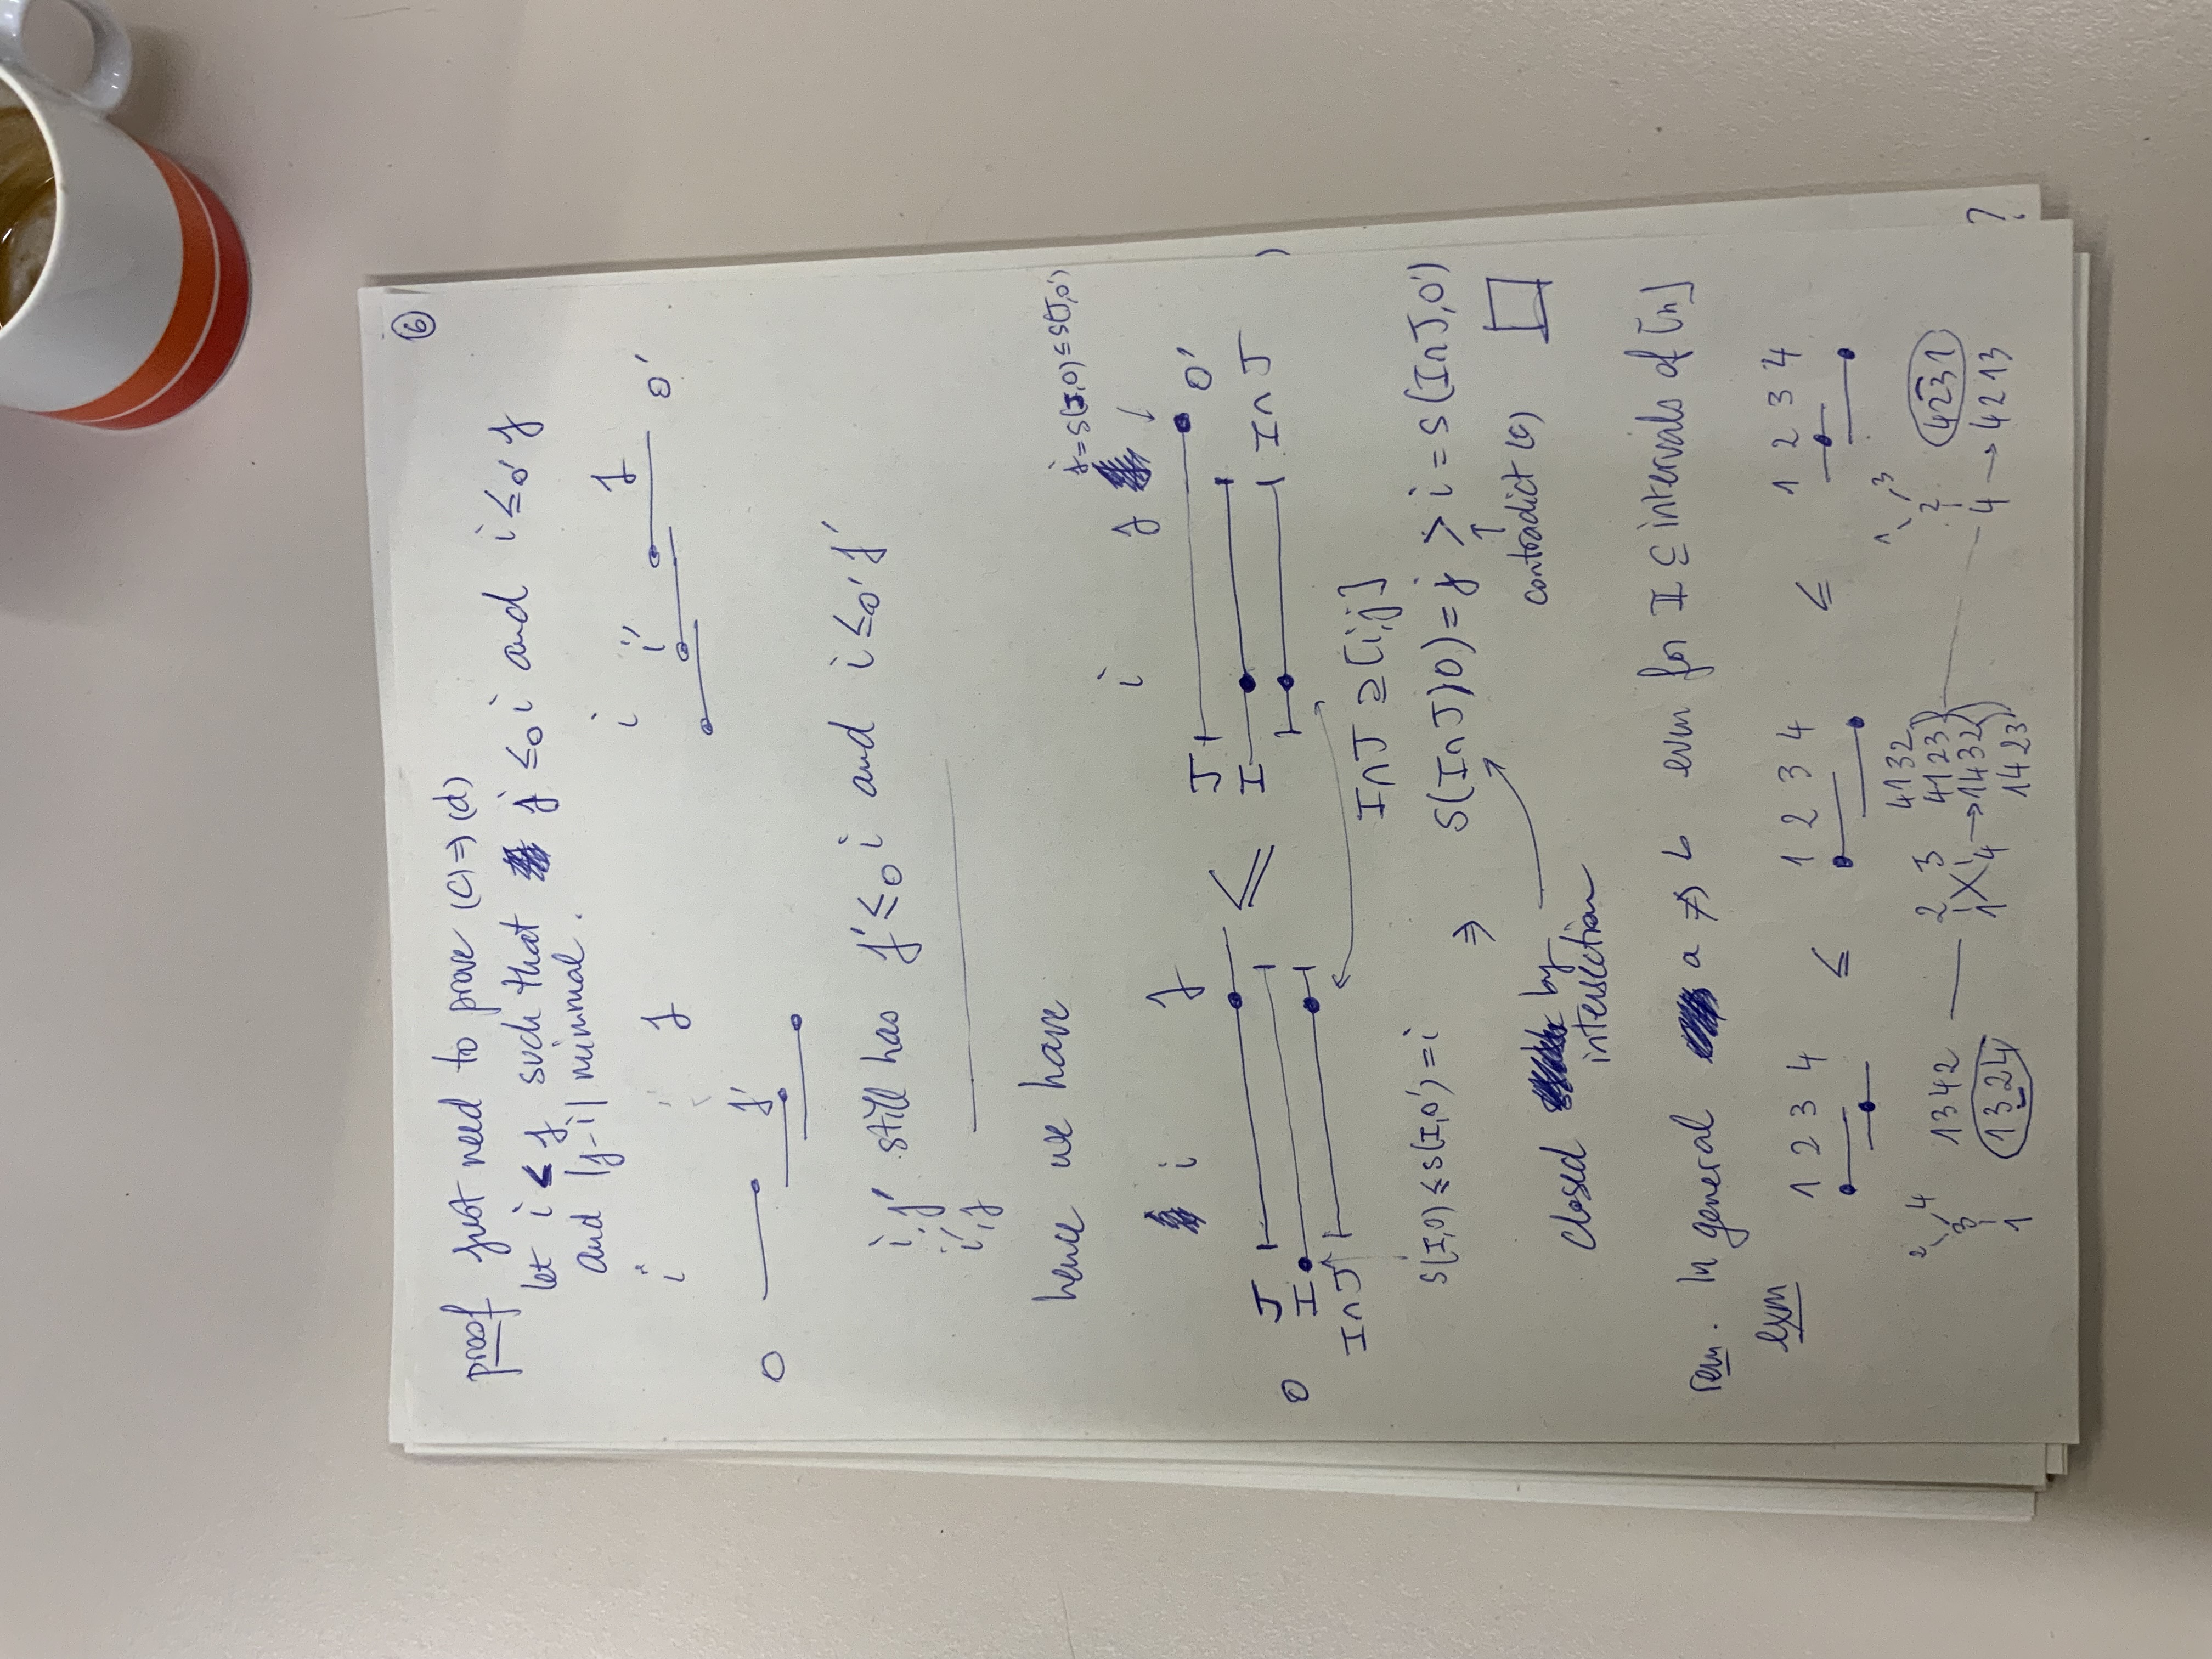 ⑥
proof just need to prove (c) ⇒ (d)
let i < j such that j ≤_O i and i ≤_O' j
and |j-i| minimal.
i j i i' j
j'
O O'
i, j' still has j' ≤_O i and i ≤_O' j'
i', j
hence we have
j = s(I,O) ≤ s(J,O')
i j i j
J J O'
I ≤ I
O I∩J I∩J
I∩J ⊇ [i,j]
s(I,O) ≤ s(I,O') = i ⇒ s(I∩J,O) = j > i = s(I∩J,O')
contradict (c) □
closed by
intersection
rem. In general a ⇏ b even for II ⊆ intervals of [n]
exm 1 2 3 4 ≤ 1 2 3 4 ≤ 1 2 3 4
2 4 1342 2 3 4132 1 3 4231
3 1324 1 4 → 4123 2 → 4213
1 1432 4 ?
1423